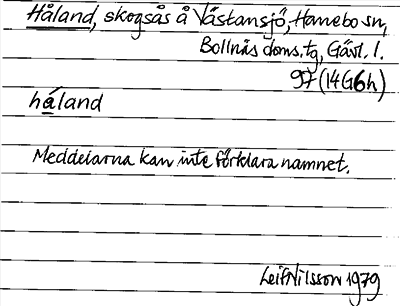 Håland, skogsås å Västansjö, Hanebo sn,
Bollnäs doms.tg, Gävl. l.
97 (14G6h)
háland
Meddelarna kan inte förklara namnet.
Leif Nilsson 1979